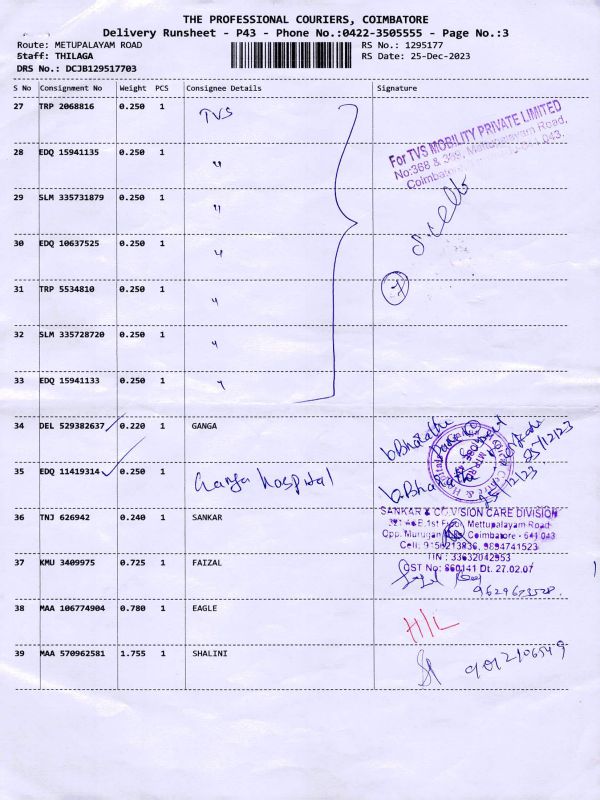 THE PROFESSIONAL COURIERS, COIMBATORE
Delivery Runsheet - P43 - Phone No.:0422-3505555 - Page No.:3
Route: METUPALAYAM ROAD RS No.: 1295177
Staff: THILAGA RS Date: 25-Dec-2023
DRS No.: DCJB129517703
S No Consignment No Weight PCS Consignee Details Signature
27 TRP 2068816 0.250 1 TVS
For TVS MOBILITY PRIVATE LIMITED
No:368 & 369, Mettupalayam Road,
Coimbatore 043.
28 EDQ 15941135 0.250 1 "
29 SLM 335731879 0.250 1 "
30 EDQ 10637525 0.250 1 "
31 TRP 5534810 0.250 1 "
7
32 SLM 335728720 0.250 1 "
33 EDQ 15941133 0.250 1 "
34 DEL 529382637 0.220 1 GANGA
b.Bharathi
25/12/23
35 EDQ 11419314 0.250 1 Ganga hospital
b.Bharathi
25/12/23
36 TNJ 626942 0.240 1 SANKAR
SANKAR & CO VISION CARE DIVISION
321 A&B,1st Floor, Mettupalayam Road
Opp. Murugan Coimbatore - 641 043
Cell: 9150213836, 9894741523
TIN : 33632042953
CST No: 860141 Dt. 27.02.07
37 KMU 3409975 0.725 1 FAIZAL
38 MAA 106774904 0.780 1 EAGLE H/L
39 MAA 570962581 1.755 1 SHALINI